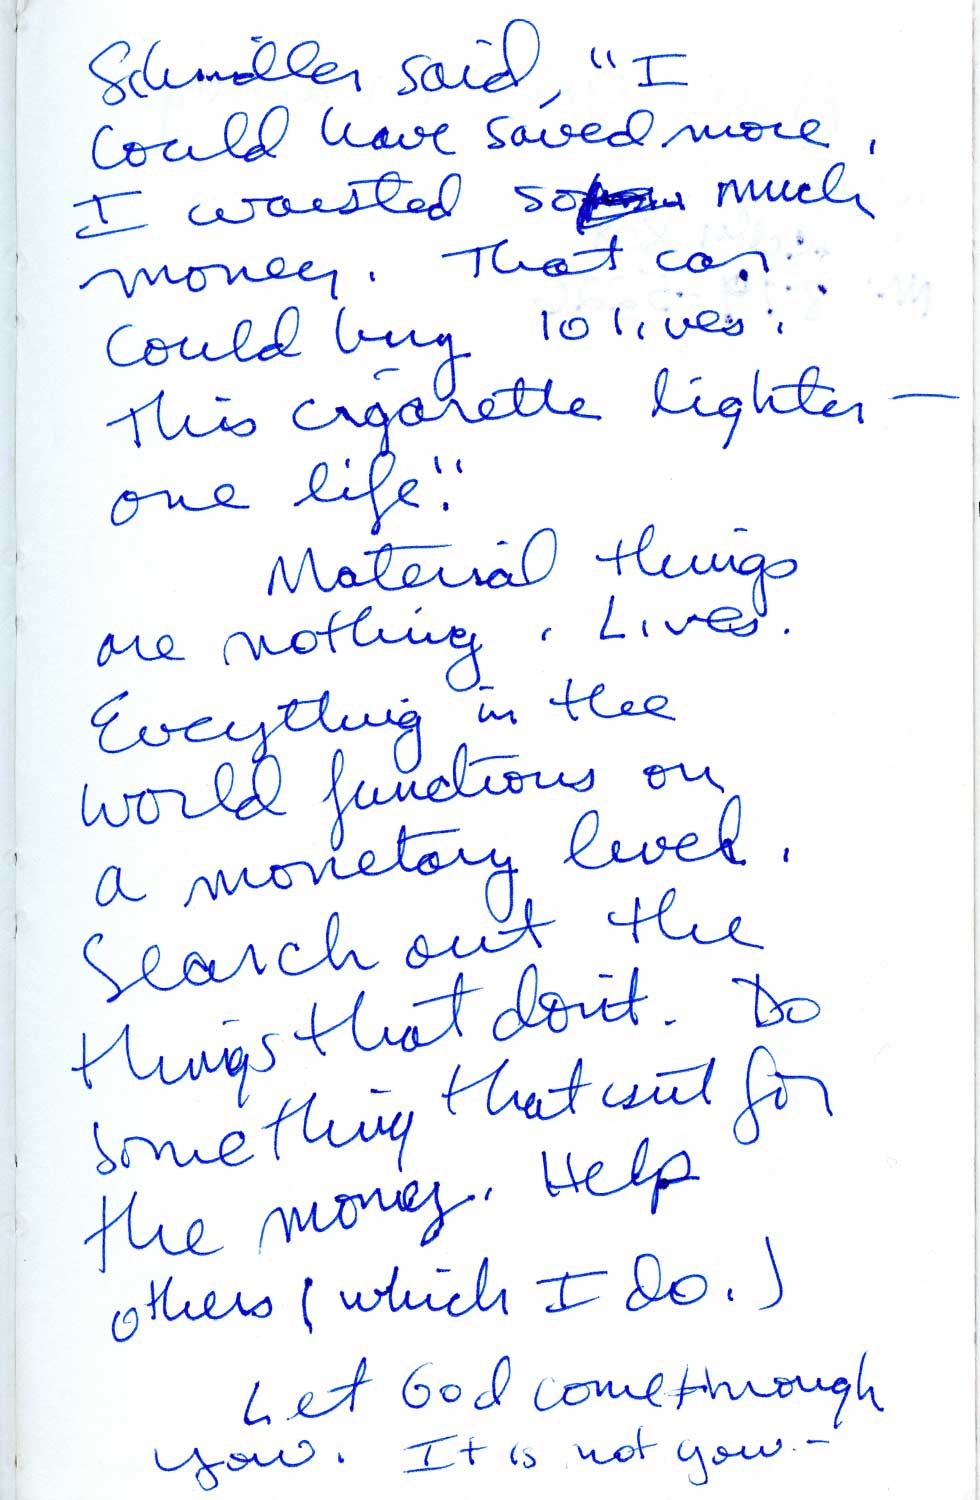 Schindler said, "I
could have saved more.
I waisted so much
money. That car
could buy 10 lives.
This cigarette lighter —
one life."
Material things
are nothing. Lives.
Everything in the
world functions on
a monetary level.
Search out the
things that don't. Do
something that isn't for
the money. Help
others (which I do.)
Let God come through
you. It is not you –